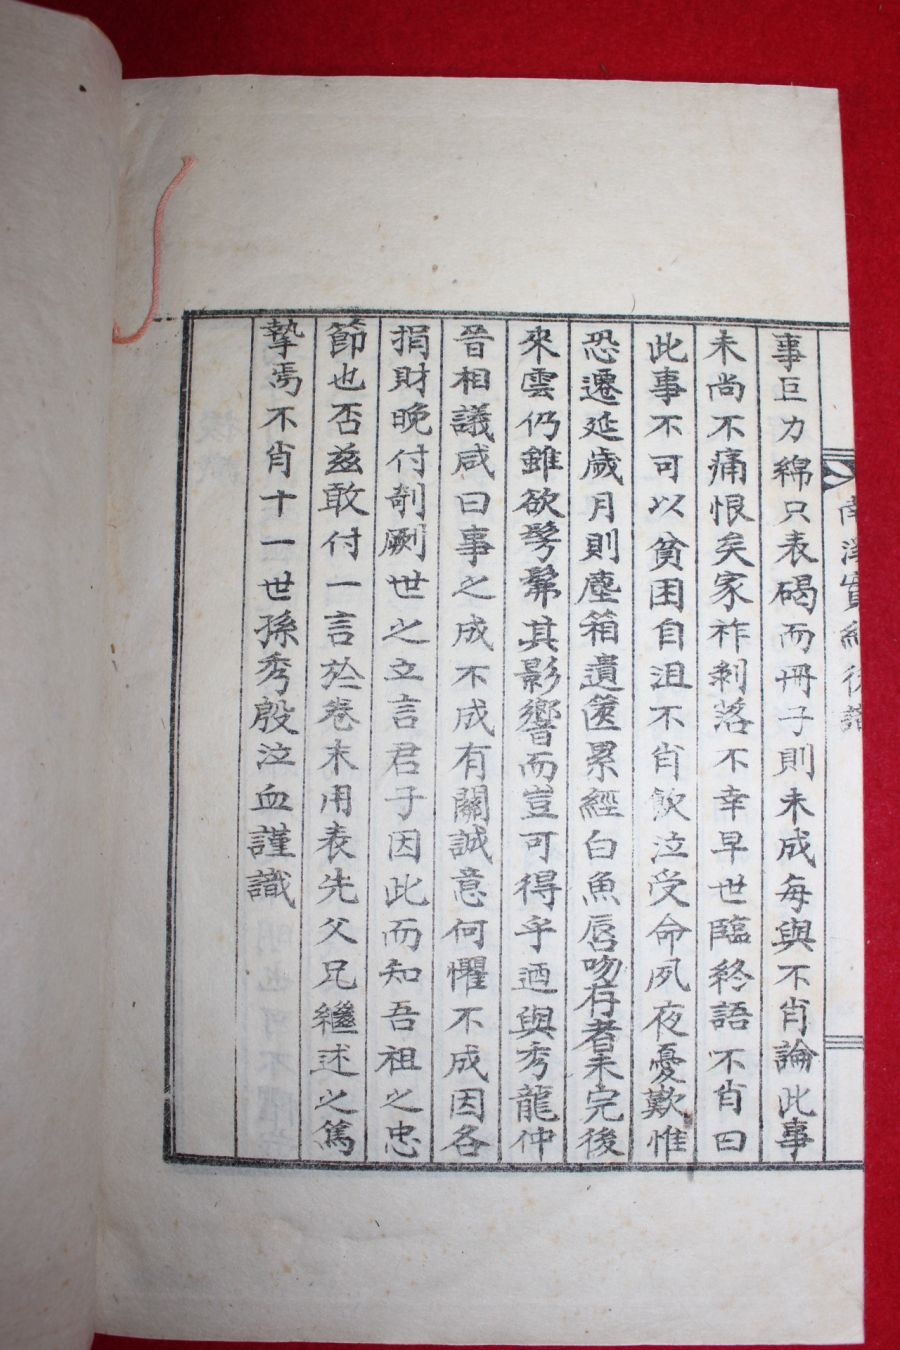 事巨力綿只表碣而冊子則未成每與不肖論此事
未尚不痛恨矣家祚剝落不幸早世臨終語不肖曰
此事不可以貧困自沮不肖飮泣受命夙夜憂歎惟
恐遷延歲月則塵箱遺篋累經白魚唇吻存者未完後
來雲仍雖欲髣髴其影響而豈可得乎迺與秀龍仲
晉相議咸曰事之成不成有關誠意何懼不成因各
捐財晩付剞劂世之立言君子因此而知吾祖之忠
節也否玆敢付一言於卷末用表先父兄繼述之篤
摯焉不肖十一世孫秀殷泣血謹識